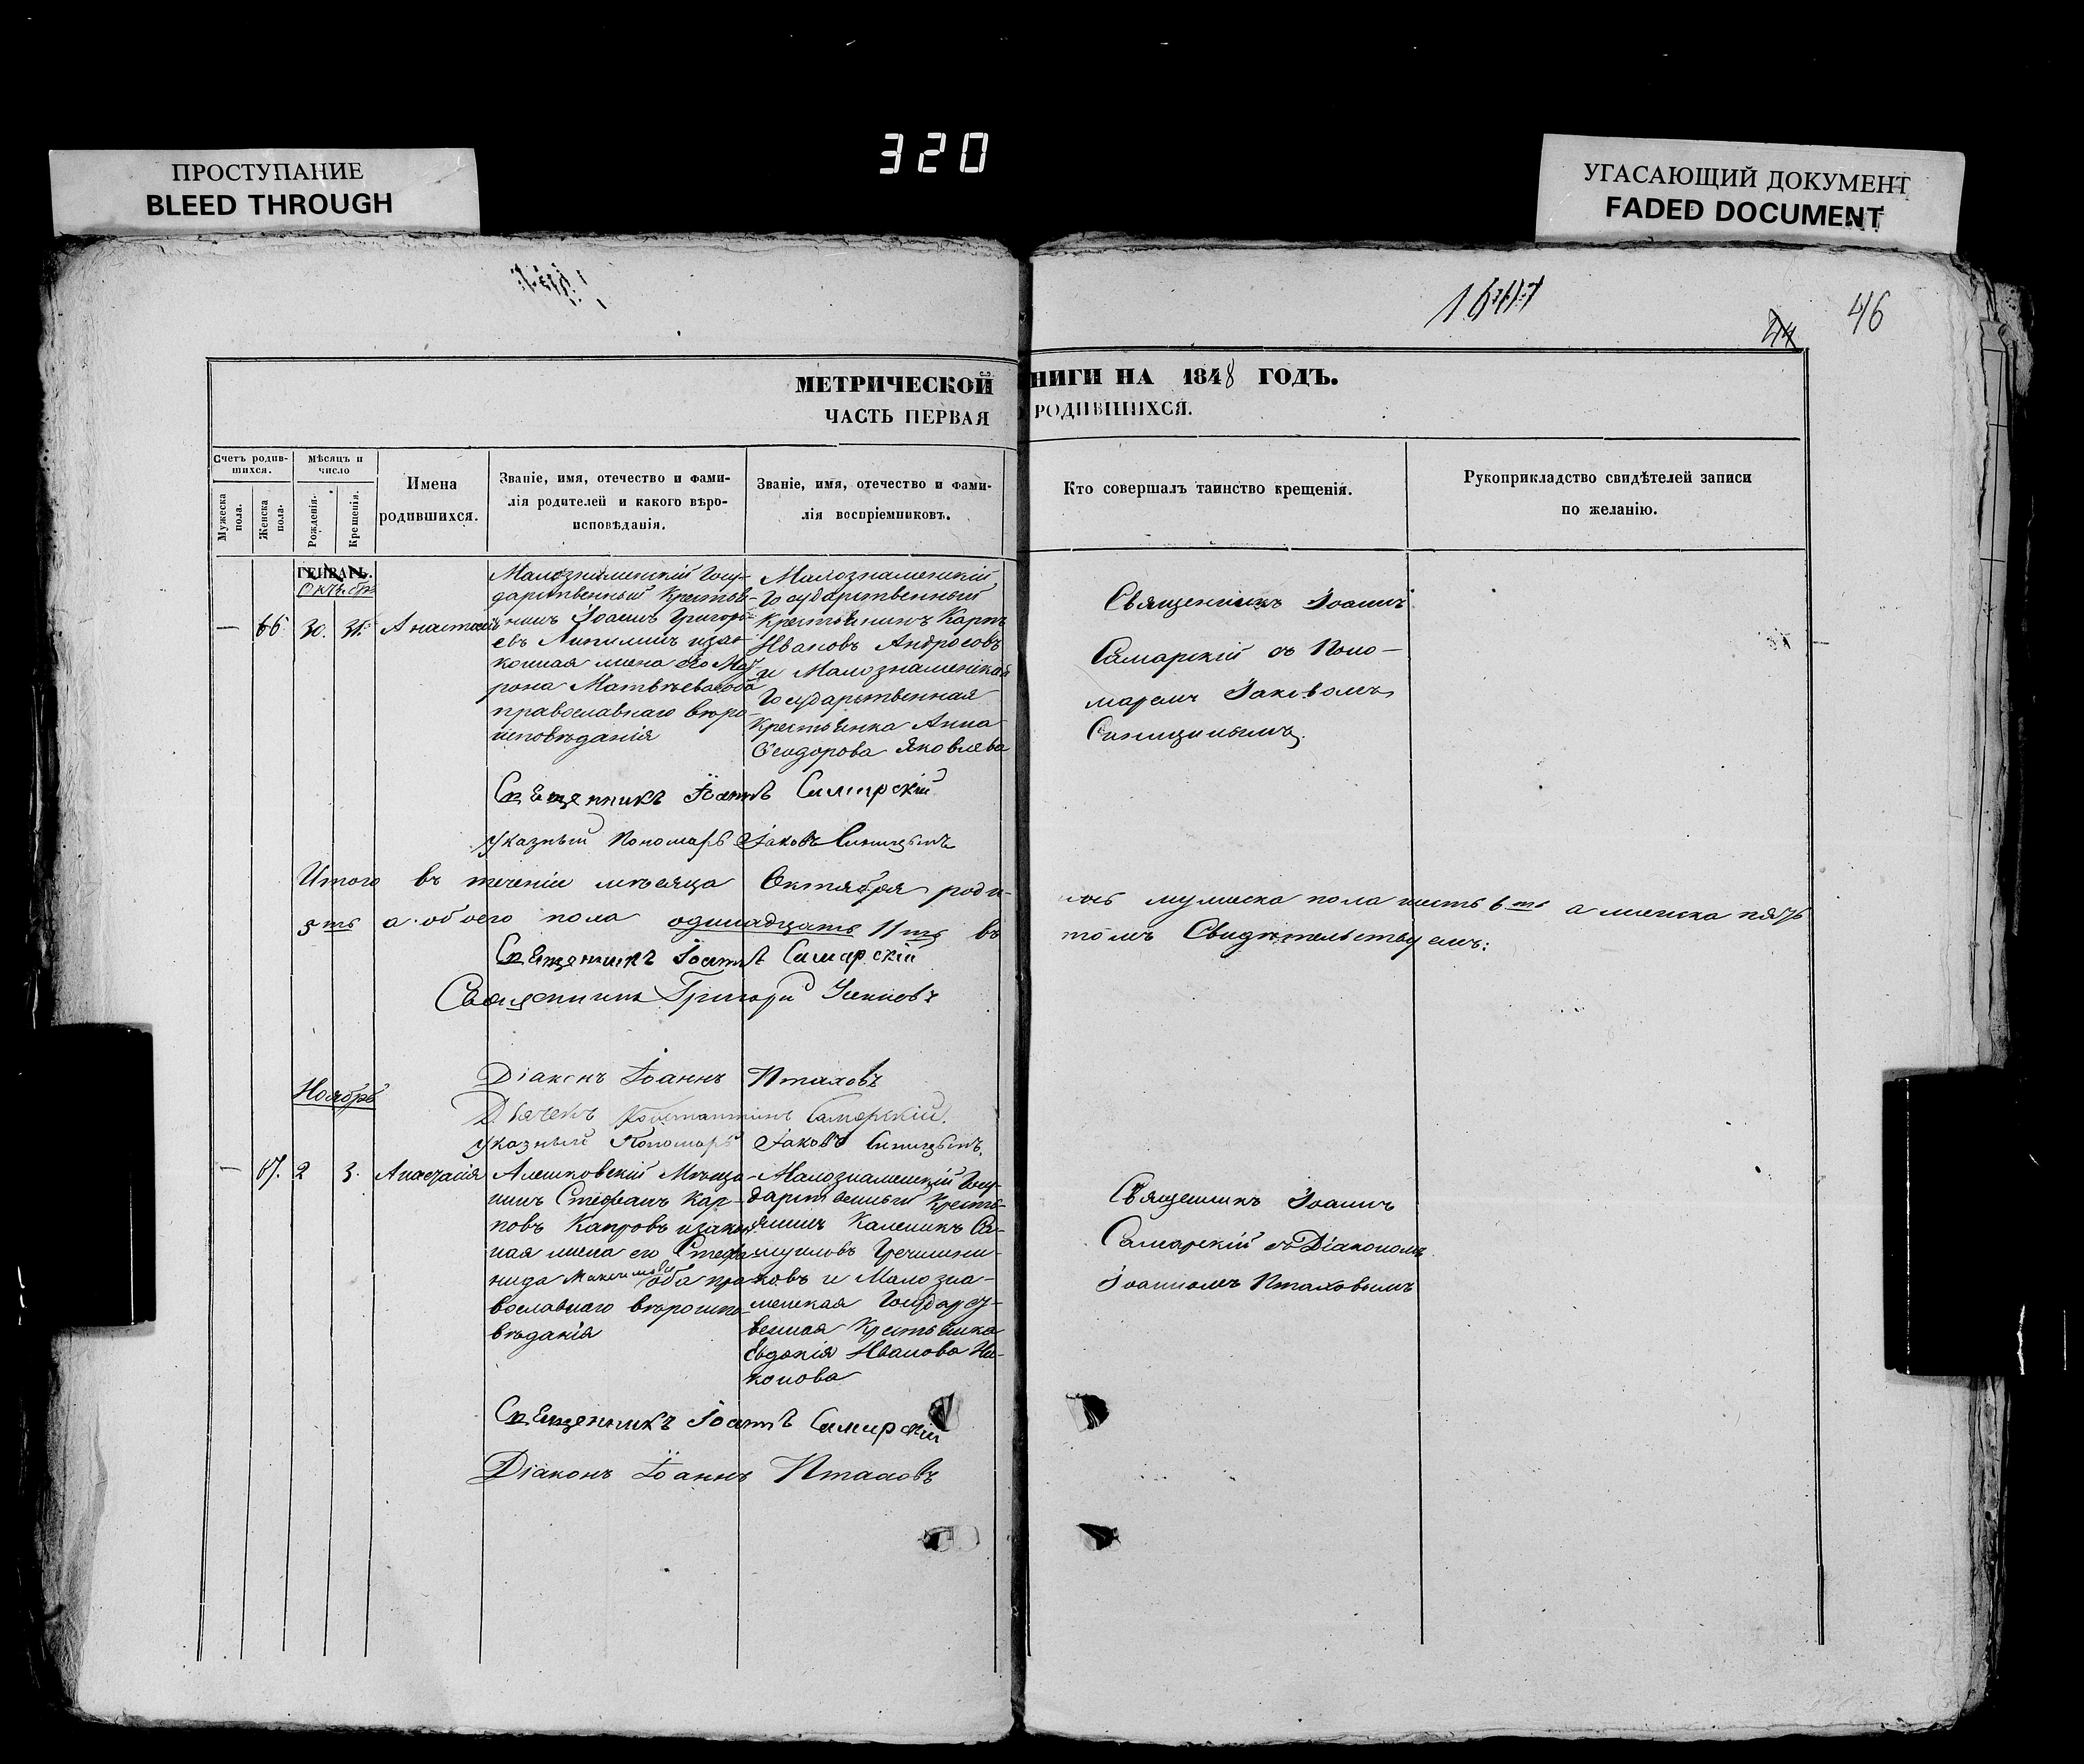 320
ПРОСТУПАНИЕ
BLEED THROUGH
УГАСАЮЩИЙ ДОКУМЕНТ
FADED DOCUMENT
46
44
МЕТРИЧЕСКОЙ КНИГИ НА 1848 ГОДЪ.
ЧАСТЬ ПЕРВАЯ РОДИВШИХСЯ.
Счетъ родив-
шихся.
Мужеска пола.
Женска пола.
Мѣсяцъ и
число
Рожденія.
Крещенія.
Имена
родившихся.
Званіе, имя, отечество и фами-
лія родителей и какого вѣро-
исповѣданія.
Званіе, имя, отечество и фами-
лія воспріемниковъ.
Кто совершалъ таинство крещенія.
Рукоприкладство свидѣтелей записи
по желанію.
ГЕНВАРЬ.
Октябрь
— 66. 30. 31. Анастасія
Малознаменскій Госу-
дарственный Крестья-
нинъ Іоаннъ Григорь-
евъ и за-
конная жена его Мат-
рона Матвѣева оба
православнаго вѣро-
исповѣданія
Малознаменскій
Государственный
Крестьянинъ Карпъ
Ивановъ Андросовъ
и Малознаменская
Государственная
Крестьянка Анна
Ѳеодорова Яковлева
Священникъ Іоаннъ
Самарскій съ Поно-
маремъ Іаковомъ
Синицинымъ.
Священникъ Іоаннъ Самарскій
Указный Пономарь Іаковъ Синицынъ
Итого въ теченіи мѣсяца Октября роди-
лось мужеска пола шесть 6ть а женска пять
5ть а обоего пола одинадцать 11ть въ
томъ Свидѣтельствуемъ:
Священникъ Іоаннъ Самарскій
Священникъ Григорій
Діаконъ Іоаннъ Птаховъ
Ноябрь
Дьячекъ Константинъ Самарскій.
Указный Пономарь Іаковъ Синицынъ.
— 67. 2 3. Анастасія
Алешковскій Мѣща-
нинъ Стефанъ Кар-
повъ Капровъ и закон-
ная жена его Стефа-
нида Максимова оба пра-
вославнаго вѣроиспо-
вѣданія
Малознаменскій Госу-
дарственный Кресть-
янинъ Каленикъ Са-
муиловъ Гречишни-
ковъ и Малозна-
менская Государст-
венная Крестьянка
Евдокія Иванова Ни-
конова
Священникъ Іоаннъ
Самарскій съ Діакономъ
Іоанномъ Птаховымъ
Священникъ Іоаннъ Самарскій
Діаконъ Іоаннъ Птаховъ